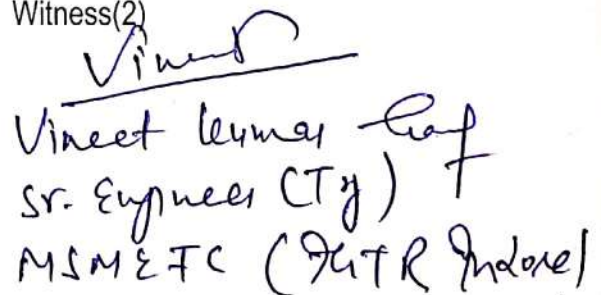 Witness(2)
Vineet
Vineet Kumar Garg
Sr. Engineer (Trg)
MSMETC (IGTR Indore)